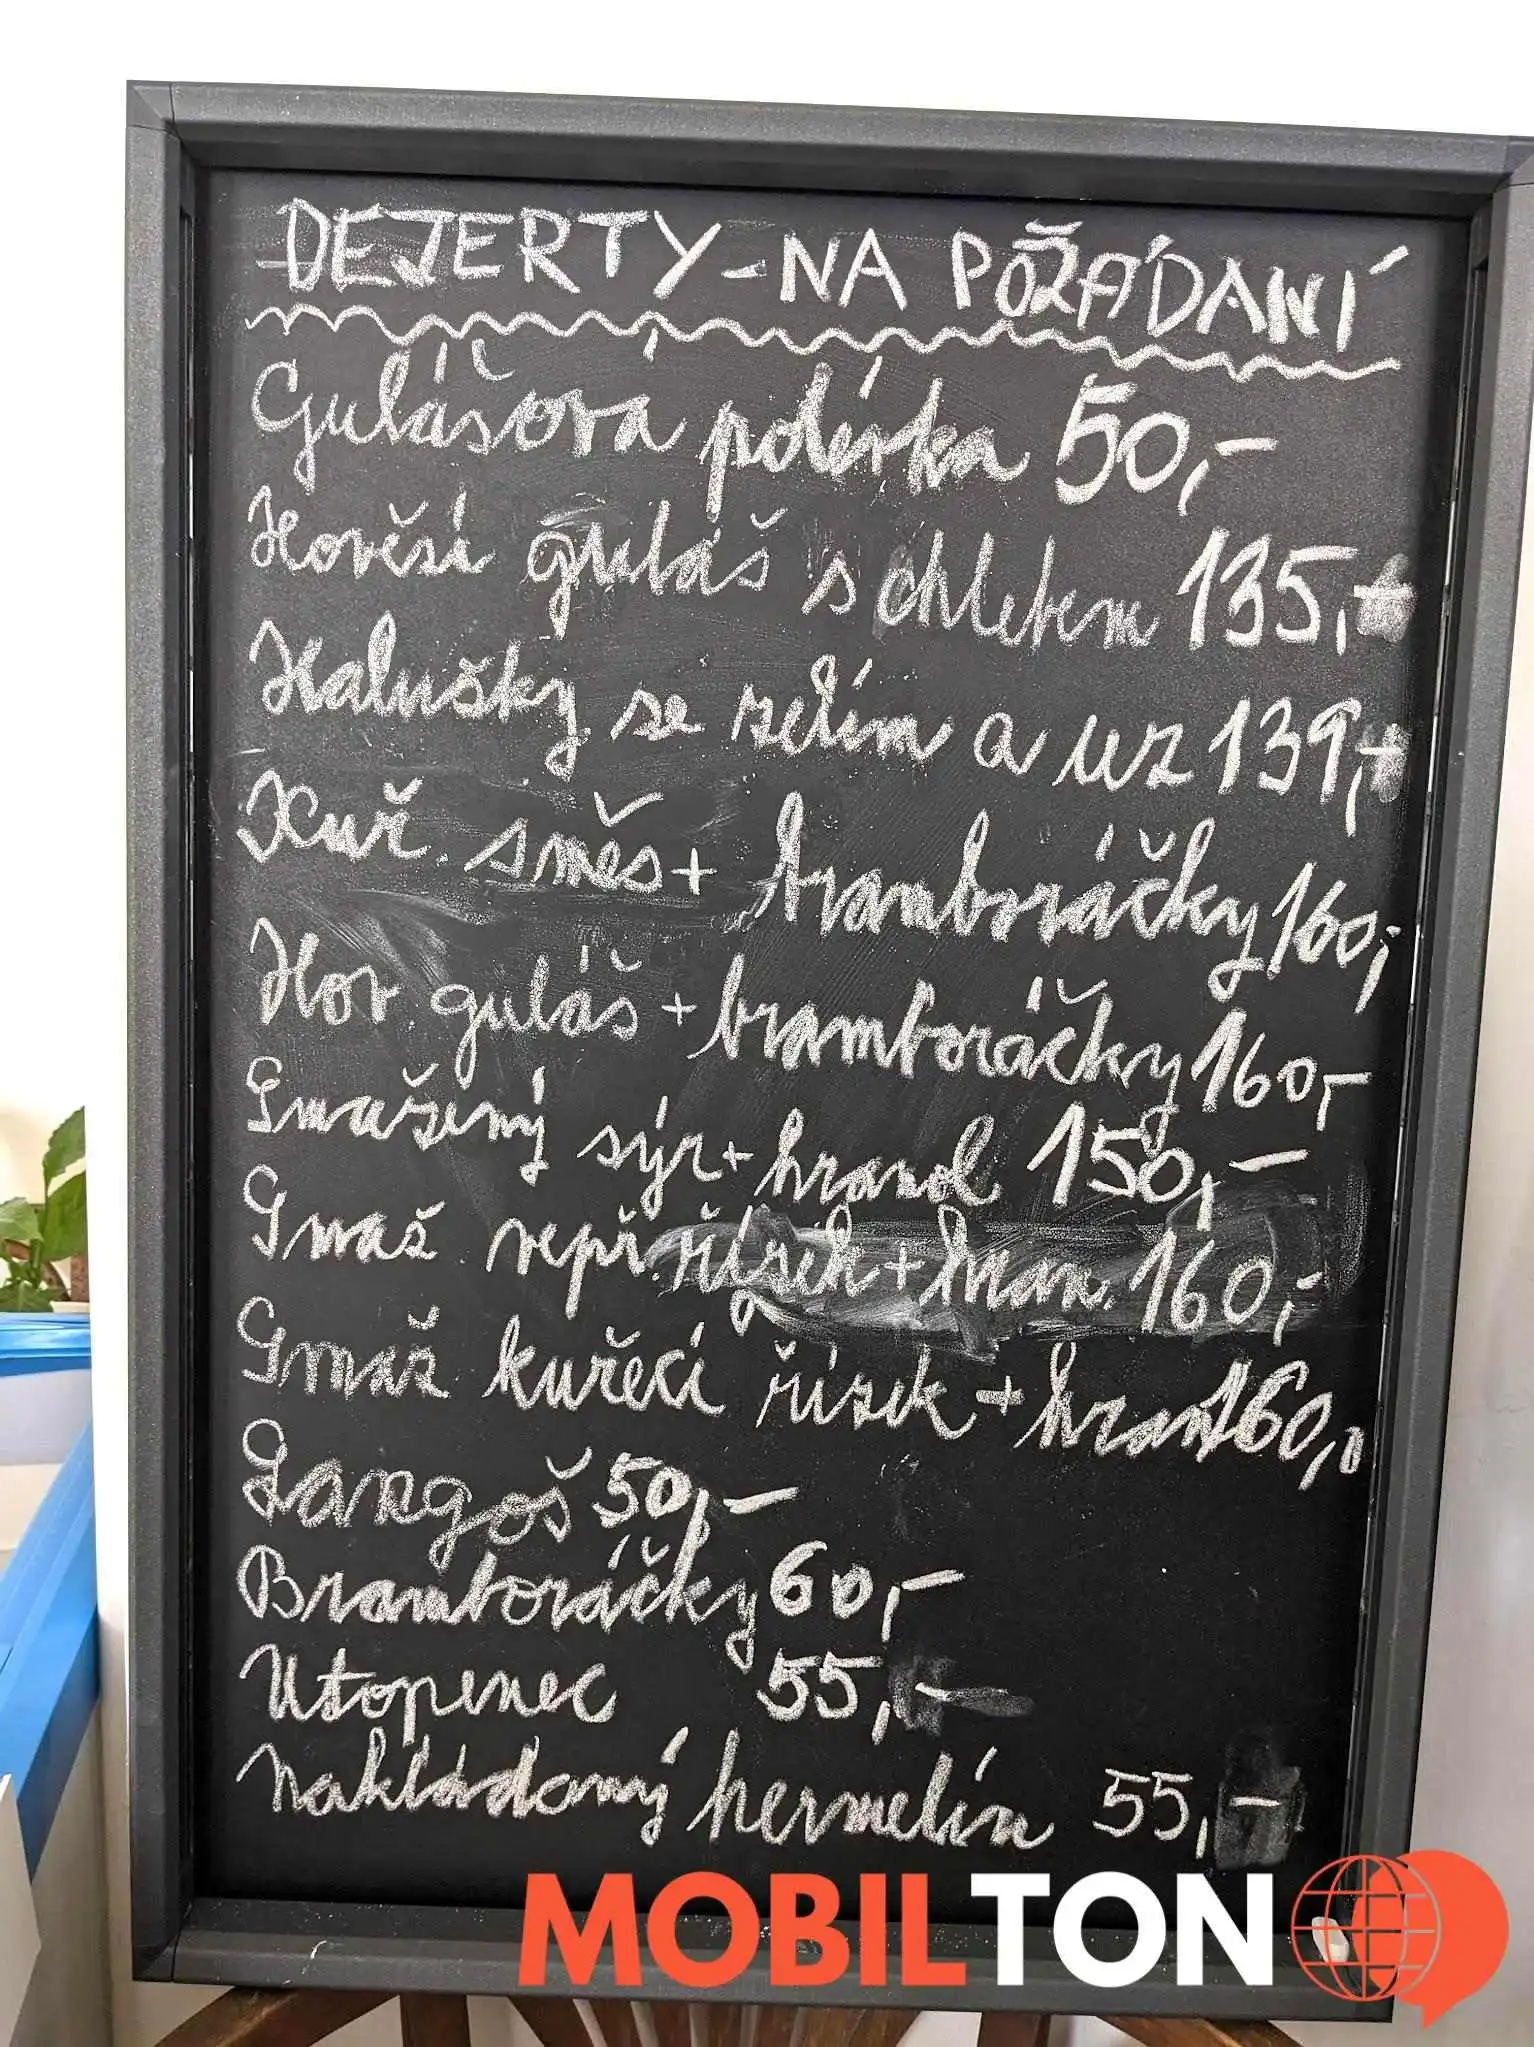 DEJERTY-NA POŽÁDANÍ
Gulášová polévka 50,-
Hověsí guláš s chlebem 135,-
Halušky se zelím a uz 139,-
Kuř. směs+ bramboráčky 160,-
Hov guláš + bramboráčky 160,-
Smažený sýr+ hranol 150,-
Smaž vepř. řízek + hran. 160,-
Smaž kuřecí řízek + hran 160,-
Langoš 50,-
Bramboráčky 60,-
Utopenec 55,-
Nakládaný hermelín 55,-
MOBILTON